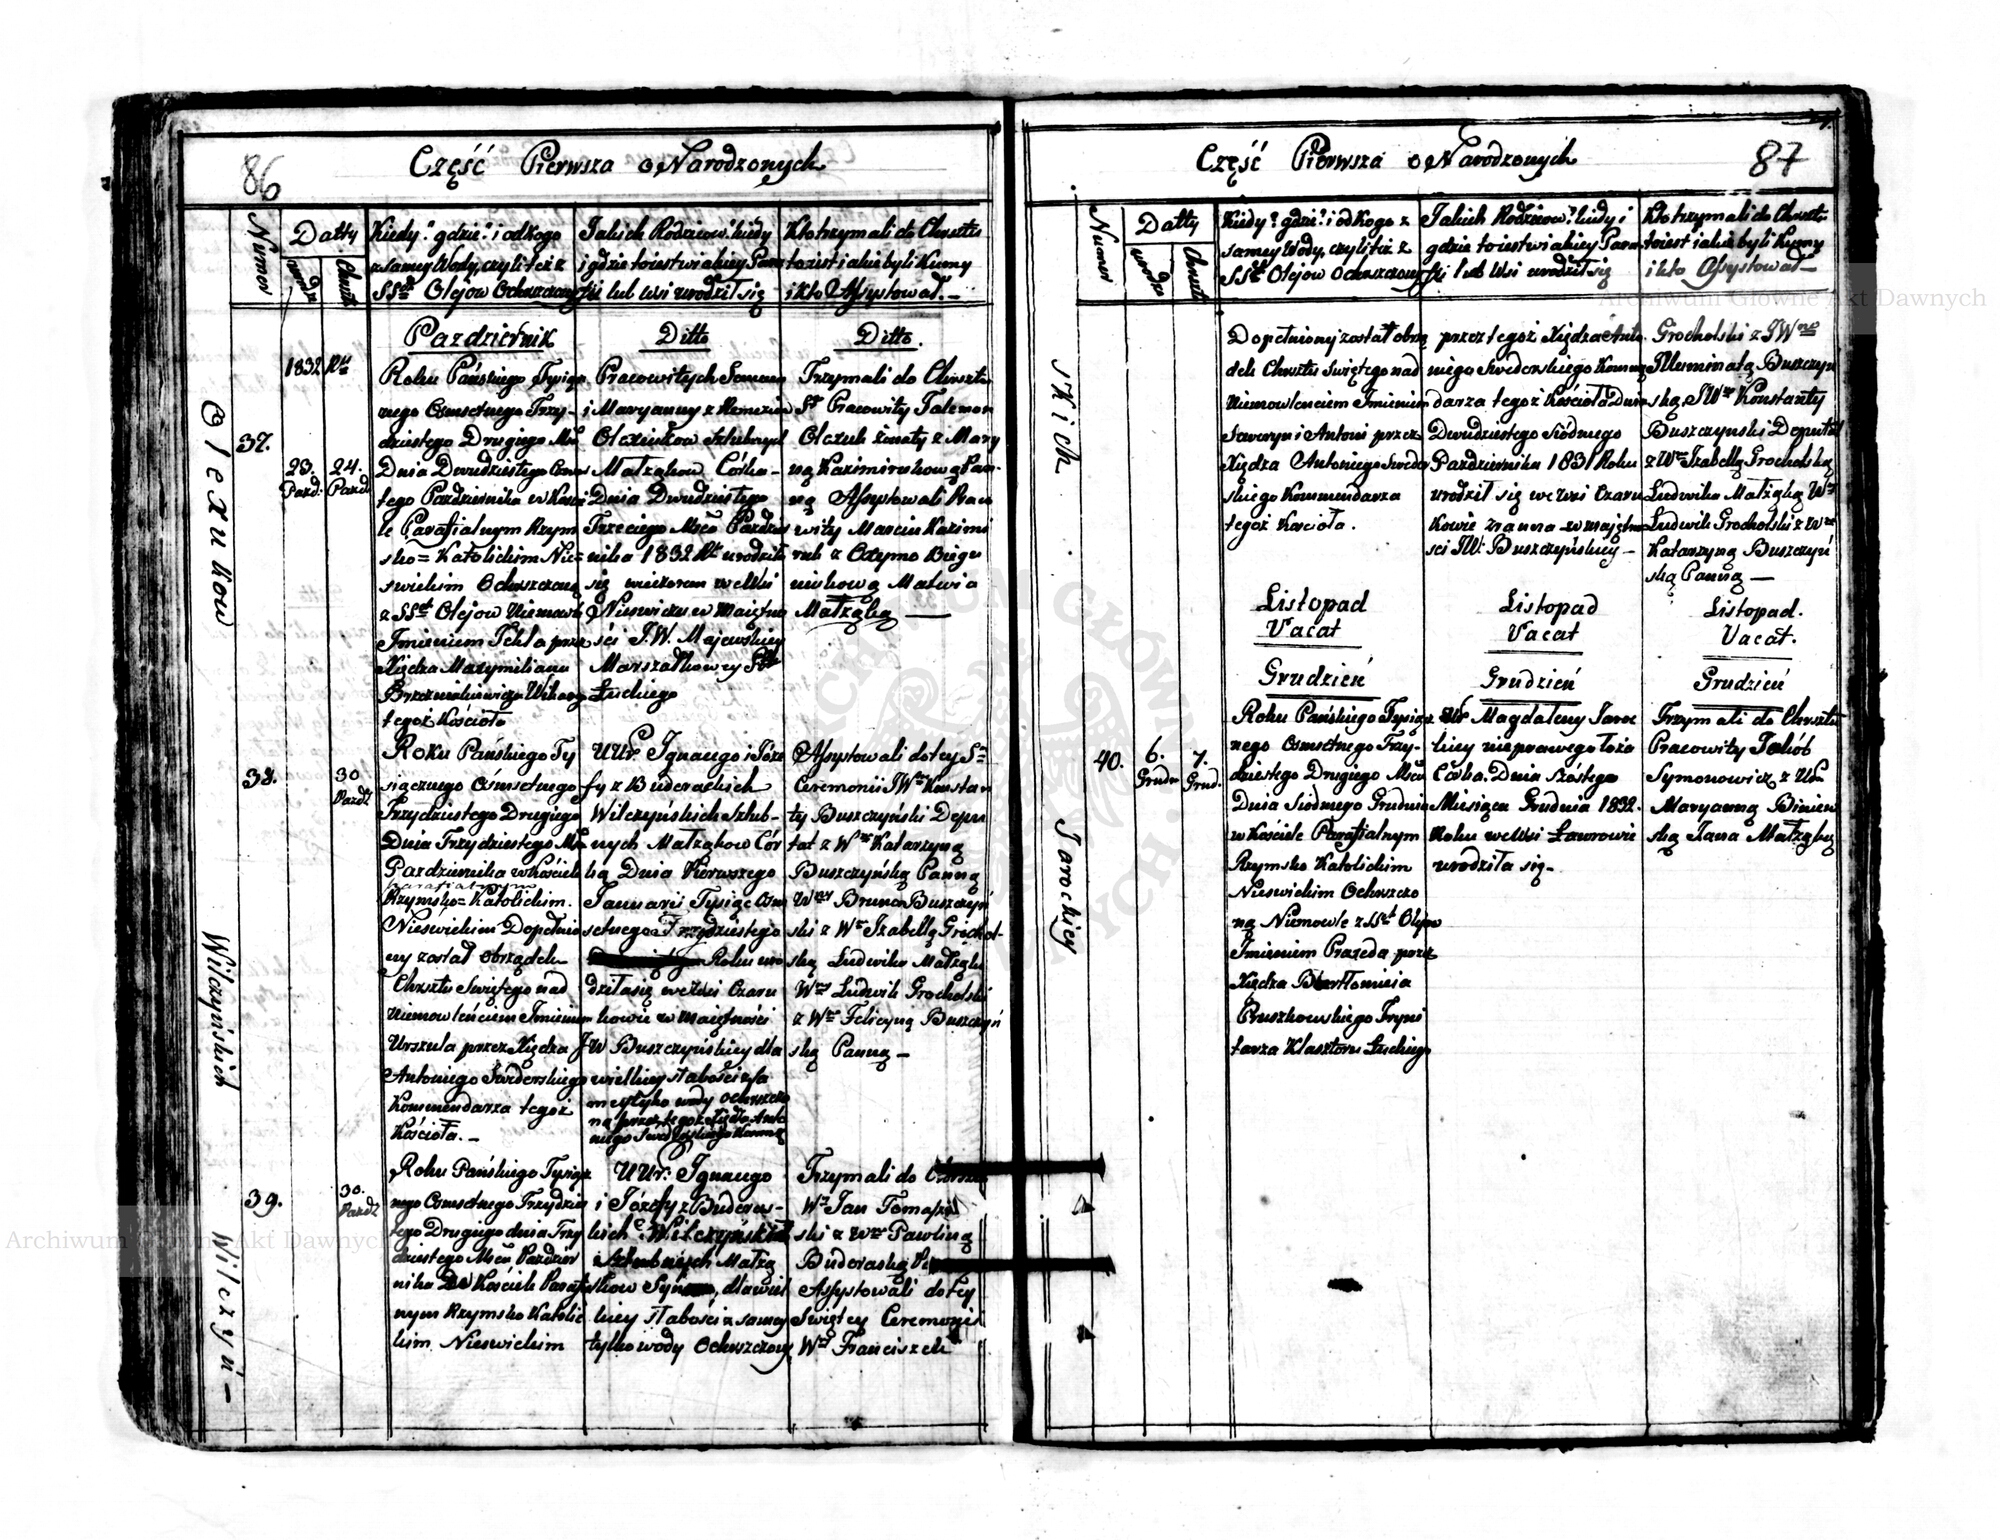 86
Część Pierwsza o Narodzonych
Numer
Datty
urodz
Chrztu
Kiedy? gdzie? i od kogo
z samey Wody, czyli też z
SSch Olejow Ochrzczony
Jakich Rodzicow? kiedy
i gdzie to iest w iakiey Para
fii lub wsi urodził się
Kto trzymali do Chrztu
to iest iakie byli Kumy
i kto Assystował. —
Pazdziernik
Ditto
Ditto.
1832 Rku
37.
23. Pazd:
24. Pazdz
Olexukow
Roku Pańskiego Tysią
cznego Osmsetnego Trzy-
dziestego Drugiego Mca
Dnia Dwudziestego Czwar
tego Pazdziernika w Kosci
le Parafialnym Rzym
sko= Katolickim Nie=
swickim Ochrzczona
z SSch Olejow Niemowle
Imieniem Tekla przez
Xiędza Maxymiliana
tegoż Kościoła
Pracowitych Semena
i Maryanny z
Olexiukow Szlubnych
Małżąkow Córka-
Dnia Dwudziestego
Trzeciego Msca Pazdzier
nika 1832 Rku urodziła
się wieczorem we Wsi
Nieswiczu w maiętno
ści J.W. Majewskiey
Marszałkowey Pttu
Łuckiego
Trzymali do Chrztu
St Pracowity Falemon
Olexuk żonaty z Mary
ną Kazimirukową Pan-
ną Assystowali Praco
wity Marcin Kazimi
ruk z
Małżąką —
38.
30 Pazdź
Wilczyńskich
Roku Pańskiego Ty
siącznego Ósmsetnego
Trzydziestego Drugiego
Dnia Trzydziestego Msca
Pazdziernika w Kościele
parafialnym
Rzymsko= Katolickim.
Nieświckim Dopełnio
ny został obrządek
Chrztu Swiętego nad
niemowlęciem Imieniem
Urszula przez Xiędza
Antoniego Swiderskiego
Kommendarza tegoż
Kościoła. —
UUr. Ignacego i Józe
fy z Buderackich
Wilczyńskich Szlub-
nych Małżąkow Cór
ka Dnia Pierwszego
Januarii Tysiąc Osm
setnego Trzydziestego
Roku uro
dziła się we Wsi Czaru
kowie w maiętności
JW Buszczyńskiey dla
wielkiey słabości z sa
mey tylko wody ochrzczo
na przez tegoż Xiędza Anto
niego Swiderskiego Komme
Assystowali do tey St
Ceremonii JWny Konstan
ty Buszczyński Depu
tat z Wną Katarzyną
Buszczyńską Panną
Wny Bruno Buszczyń
ski z Wną Izabellą Grochol-
ską Ludwika Małżąką
Wny Ludwik Grocholski
z Wną Felicyną Buszczyń
ską Panną —
39.
30. Pazdz
Wilczyń-
Roku Pańskiego Tysiącz
nego Osmsetnego Trzydzies
tego Drugiego dnia Trzy
dziestego Msca Pazdzier
nika w Kościele Parafial
nym Rzymsko Katolic
kim Nieswickim
UUr: Ignacego
i Józefy z Buderac-
kich Wilczyńskich
Szlubnych Małżą
kow Syn, dla wiel
kiey słabości z samey
tylko wody Ochrzczony
Trzymali do Chrztu
Wny Jan Tomaszew
ski z Wną Pawliną
Buderacką
Assystowali do tey
Swiętey Ceremonii
Wny Franciszek
87
Część Pierwsza o Narodzonych
Numer
Datty
urodz
Chrzt
Kiedy? gdzie? i od kogo z
samey Wody, czyli też z
SSch Olejow Ochrzczony
Jakich Rodzicow? kiedy i
gdzie to iest w iakiey Para
fii lub Wsi urodził się
Kto trzymali do Chrztu
to iest iakie byli Kumy
i kto Assystował —
skich
Dopełniony został obrzą
dek Chrztu Swiętego nad
niemowlęciem Imieniem
Seweryn i Antoni przez
Xiędza Antoniego Swider
skiego Kommendarza
tegoż Kościoła.
przez tegoż Xiędza Anto
niego Swederskiego Komm
darza tegoż Kościoła Dnia
Dwudziestego Siódmego
Pazdziernika 1831 Roku
urodził się we wsi Czaru
kowie z rana w majętno
ści JW: Buszczyńskiey —
Grocholski z JWną
Filuminatą Buszczyń
ską, JWny Konstanty
Buszczynski Deputat
z Wną Izabellą Grocholską
Ludwika Małżąką Wny
Ludwik Grocholski z Wną
Katarzyną Buszczyń
ską Panną —
Listopad
Vacat
Listopad
Vacat
Listopad.
Vacat.
Grudzień
Grudzień
Grudzień
40.
6. Grudn
7. Grud.
Jarockiey
Roku Pańskiego Tysiącz
nego Osmsetnego Trzy-
dziestego Drugiego Msca
Dnia Siódmego Grudnia
w Kościele Parafialnym
Rzymsko Katolickim
Nieswickim Ochrzczo
na Niemowle z SSch Olejow
Imieniem Praxeda przez
Xiędza Bartłomieia
Pruszkowskiego Tryni
tarza Klasztoru Łuckiego
Ur Magdaleny Jaroc
kiey nieprawego łoża
Córka. Dnia szóstego
Miesiąca Grudnia 1832.
Roku we Wsi Ławrowie
urodziła się. —
Trzymali do Chrztu
Pracowity Jakób
Symonowicz z Ur
Maryanną Biniew
ską Jana Małżąką
Archiwum Główne Akt Dawnych
Archiwum Główne Akt Dawnych